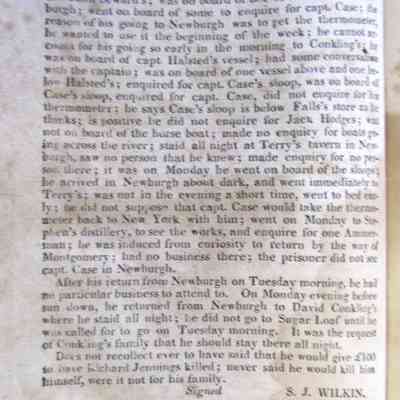 burgh; went on board of some to enquire for capt. Case; the
reason of his going to Newburgh was to get the thermometer,
he wanted to use it the beginning of the week; he cannot ac-
count for his going so early in the morning to Conkling's; he
was on board of capt. Halsted's vessel; had some conversation
with the captain; was on board of one vessel above and one be-
low Halsted's; enquired for capt. Case's sloop, was on board of
Case's sloop, enquired for capt. Case, did not enquire for his
thermometer; he says Case's sloop is below Falls's store as he
thinks; is positive he did not enquire for Jack Hodges; was
not on board of the horse boat; made no enquiry for boats go-
ing across the river; staid all night at Terry's tavern in New-
burgh, saw no person that he knew; made enquiry for no per-
son there; it was on Monday he went on board of the sloops;
he arrived in Newburgh about dark, and went immediately to
Terry's; was not in the evening a short time, went to bed ear-
ly; he did not suppose that capt. Case would take the thermo-
meter back to New York with him; went on Monday to Ste-
phen's distillery, to see the works, and enquire for one Ammer-
man; he was induced from curiosity to return by the way of
Montgomery; had no business there; the prisoner did not see
capt. Case in Newburgh.
After his return from Newburgh on Tuesday morning, he had
no particular business to attend to. On Monday evening before
sun down, he returned from Newburgh to David Conkling's
where he staid all night; he did not go to Sugar Loaf until he
was called for to go on Tuesday morning. It was the request
of Conkling's family that he should stay there all night.
Does not recollect ever to have said that he would give £100
to have Richard Jennings killed; never said he would kill him
himself, were it not for his family.
Signed S. J. WILKIN.